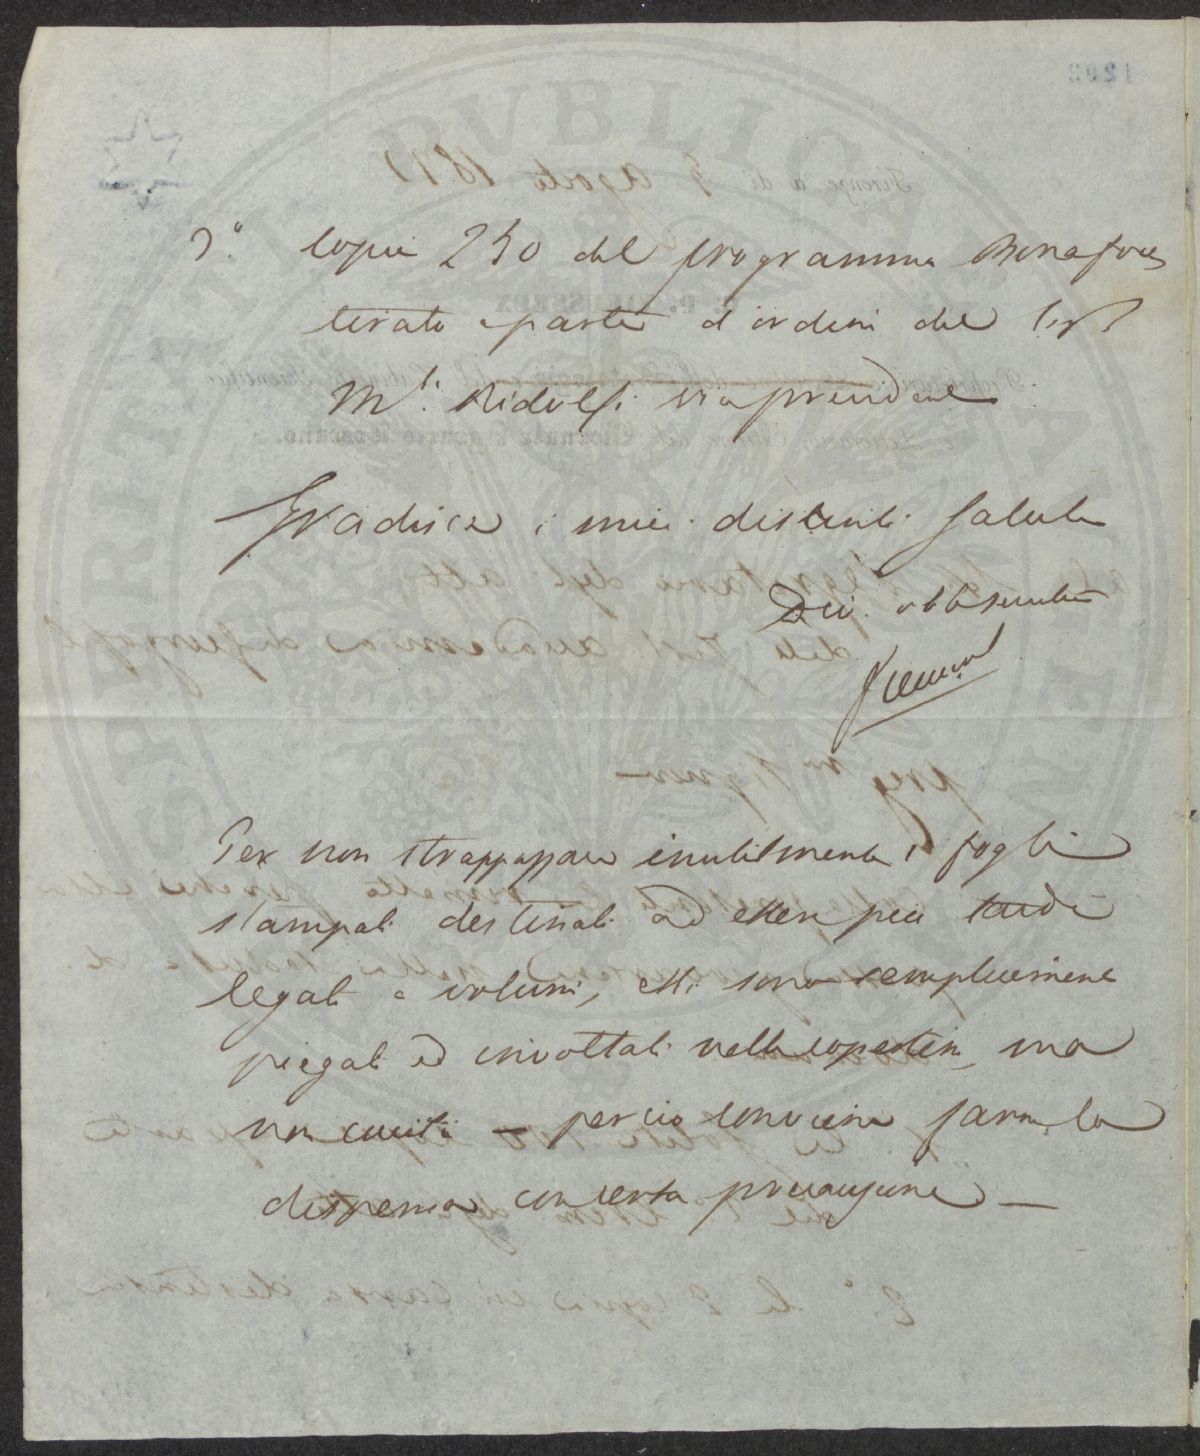 3.° Copie 250 del programma Bonafous
tirato a parte d'ordini del Sig.r
M.se Ridolfi vicepresidente
Gradisca i miei distinti saluti
Dev. obb servitore
Per non strappazzare inutilmente i fogli
stampati destinati ad essere piu tardi
legati a volumi, essi sono semplicimente
piegati ed involtati nella copertina, ma
non cuciti – perciò conviene farne la
dispensa con certa precauzione –